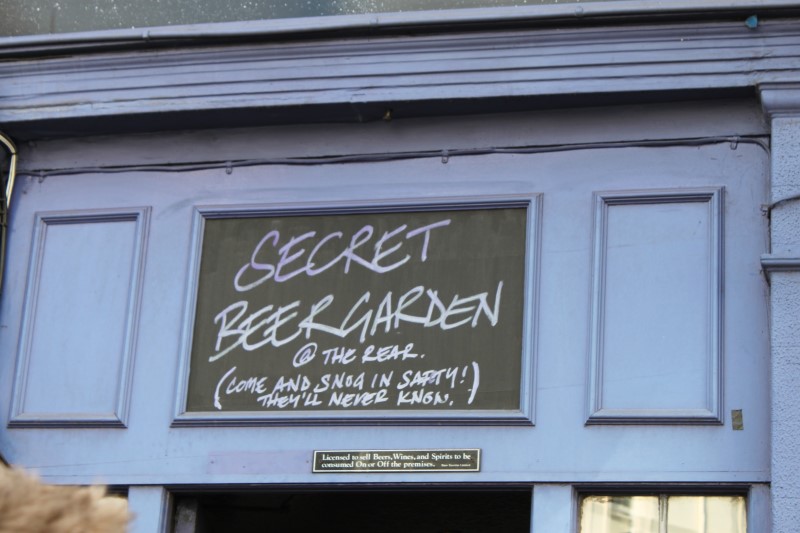 SECRET
BEER GARDEN
@ THE REAR.
(COME AND SNOG IN SAFTY!)
THEY'LL NEVER KNOW.
Licensed to sell Beers, Wines, and Spirits to be
consumed On or Off the premises.